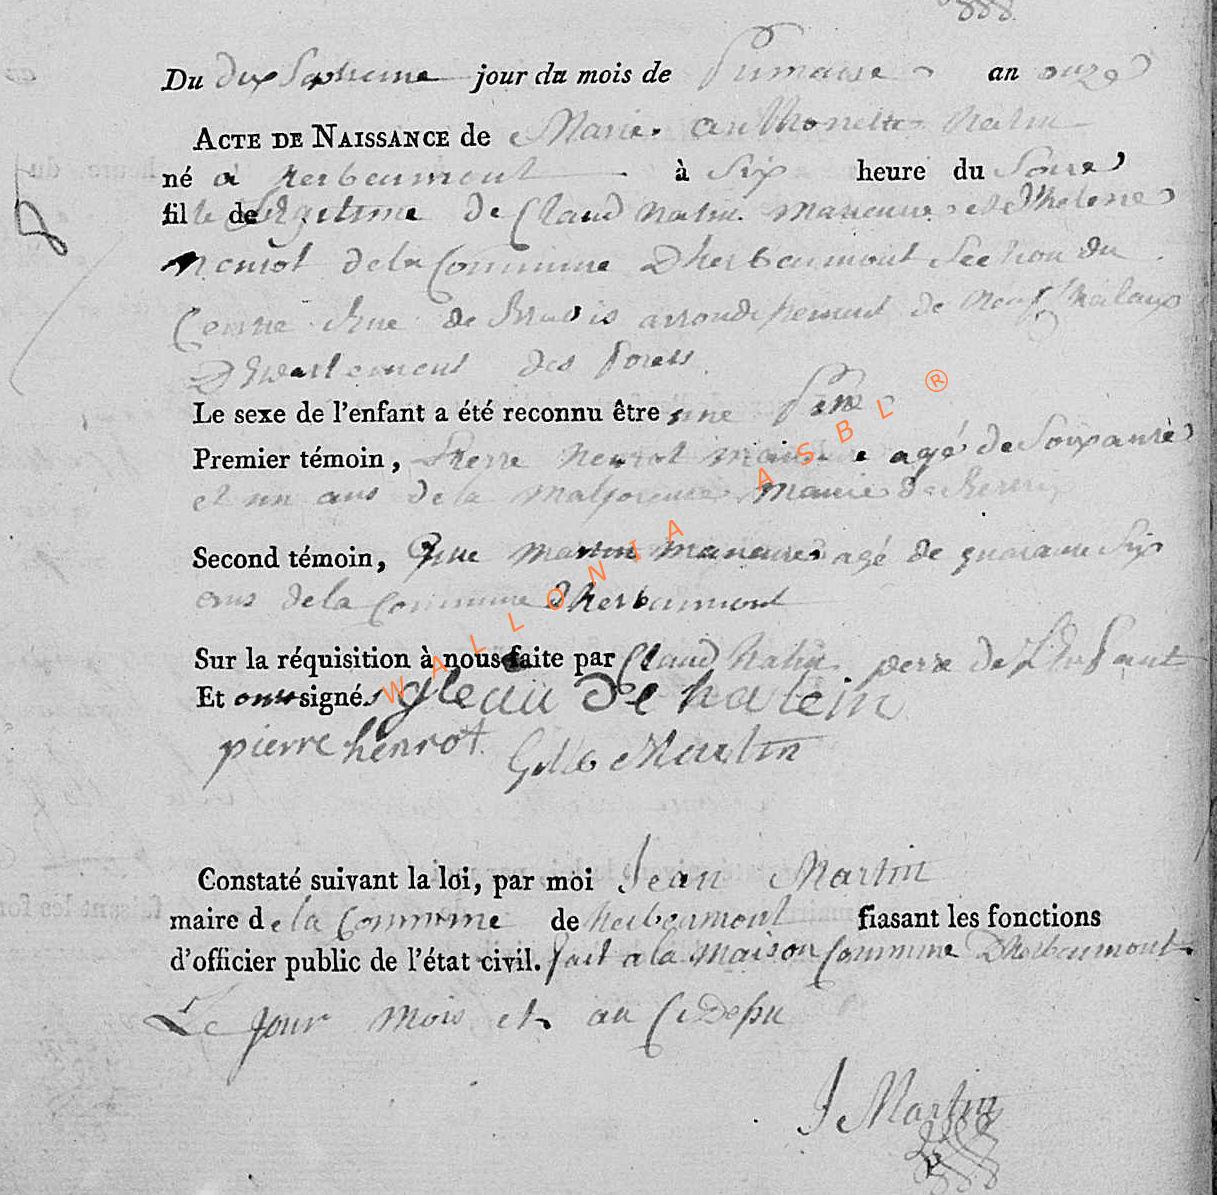 Du dix Septieme jour du mois de frimaire an onze
ACTE DE NAISSANCE de Marie anthonette halin
né a herbeumont à Six heure du Soire
fille de Legitime de Claud halin maneuvre et dhelene
henrot dela Commune Dherbeumont Section du
Centre Rue de arrondissement de Neufchataux
Departement des forets
Le sexe de l'enfant a été reconnu être une
Premier témoin, Pierre henrot agé de Soixante
et un ans de la
Second témoin, martin maneuvre agé de quarante Six
ans dela Commune dherbeumont
Sur la réquisition à nous faite par Claud halin pere de L'Enfant
Et ont signés gleau De halein
pierre henrot Gille Martin
Constaté suivant la loi, par moi Jean Martin
maire de la Commune de herbeumont fiasant les fonctions
d'officier public de l'état civil. fait a la maison Commune Dherbeumont
Le Jour mois et an Ci Desu
J Martin
WALLONIA ASBL ®